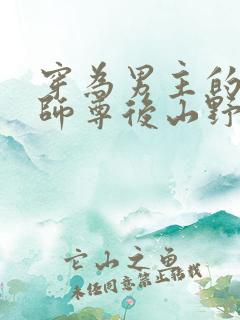 穿為男主的
師尊後山野
它山之魚
未經同意禁止轉載